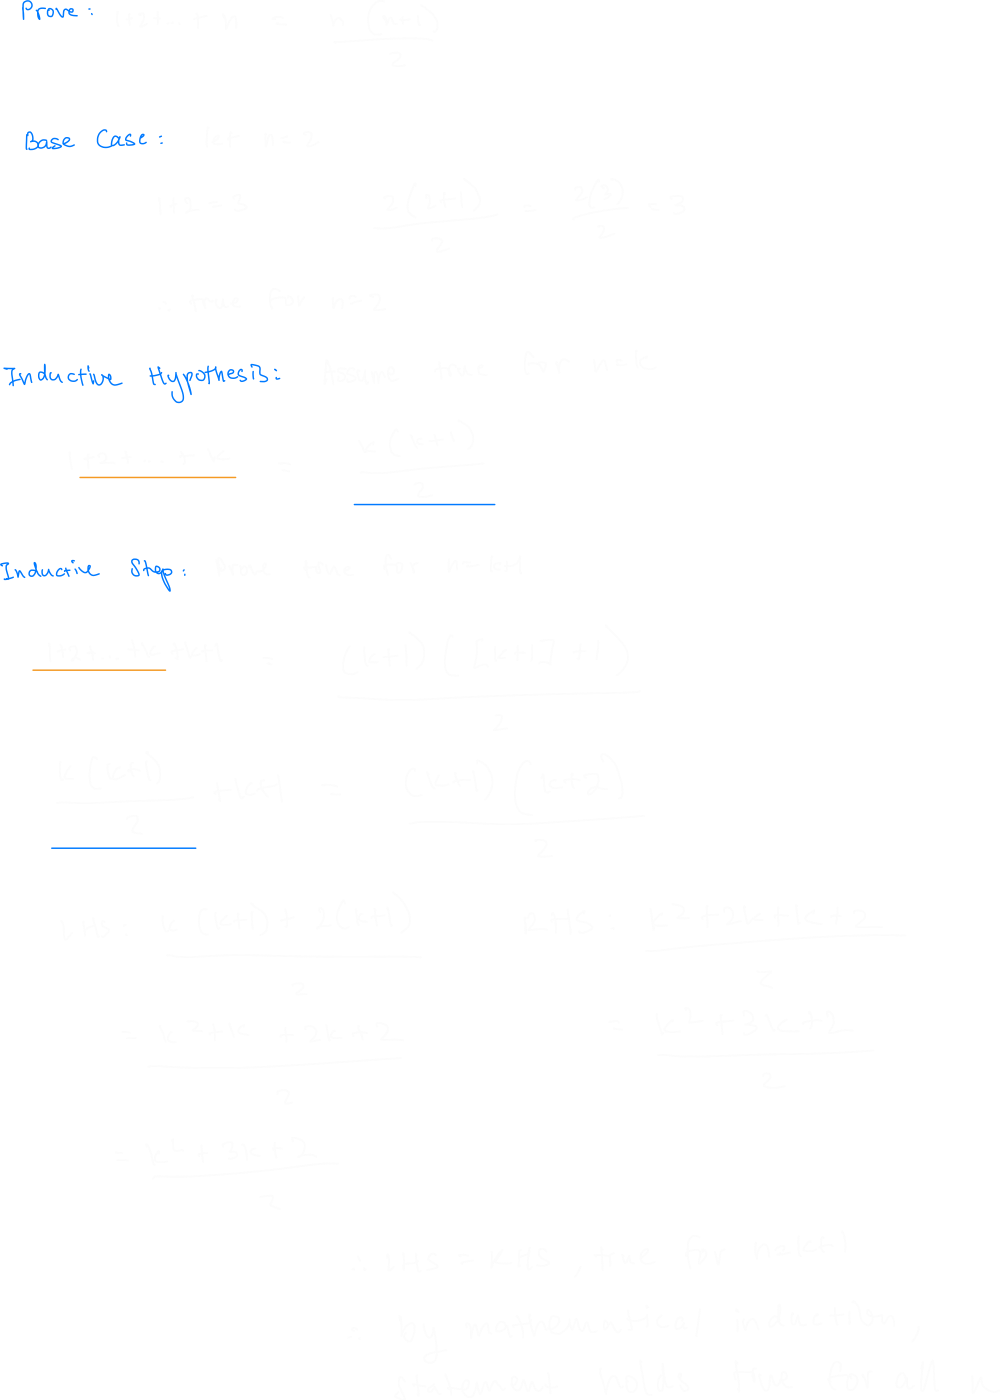 Prove: 1+2+...+n = n(n+1)/2
Base Case: let n=2
1+2=3 2(2+1)/2 = 2(3)/2 = 3
∴ true for n=2
Inductive Hypothesis: Assume true for n=k
1+2+...+k = k(k+1)/2
Inductive Step: Prove true for n=k+1
1+2+...+k+k+1 = (k+1)([k+1]+1)/2
k(k+1)/2 +k+1 = (k+1)(k+2)/2
LHS: k(k+1)+2(k+1)/2 RHS: k²+2k+k+2/2
= k²+k+2k+2/2 = k²+3k+2/2
= k²+3k+2/2
∴ LHS = RHS, true for n=k+1
∴ by mathematical induction,
statement holds true for all n